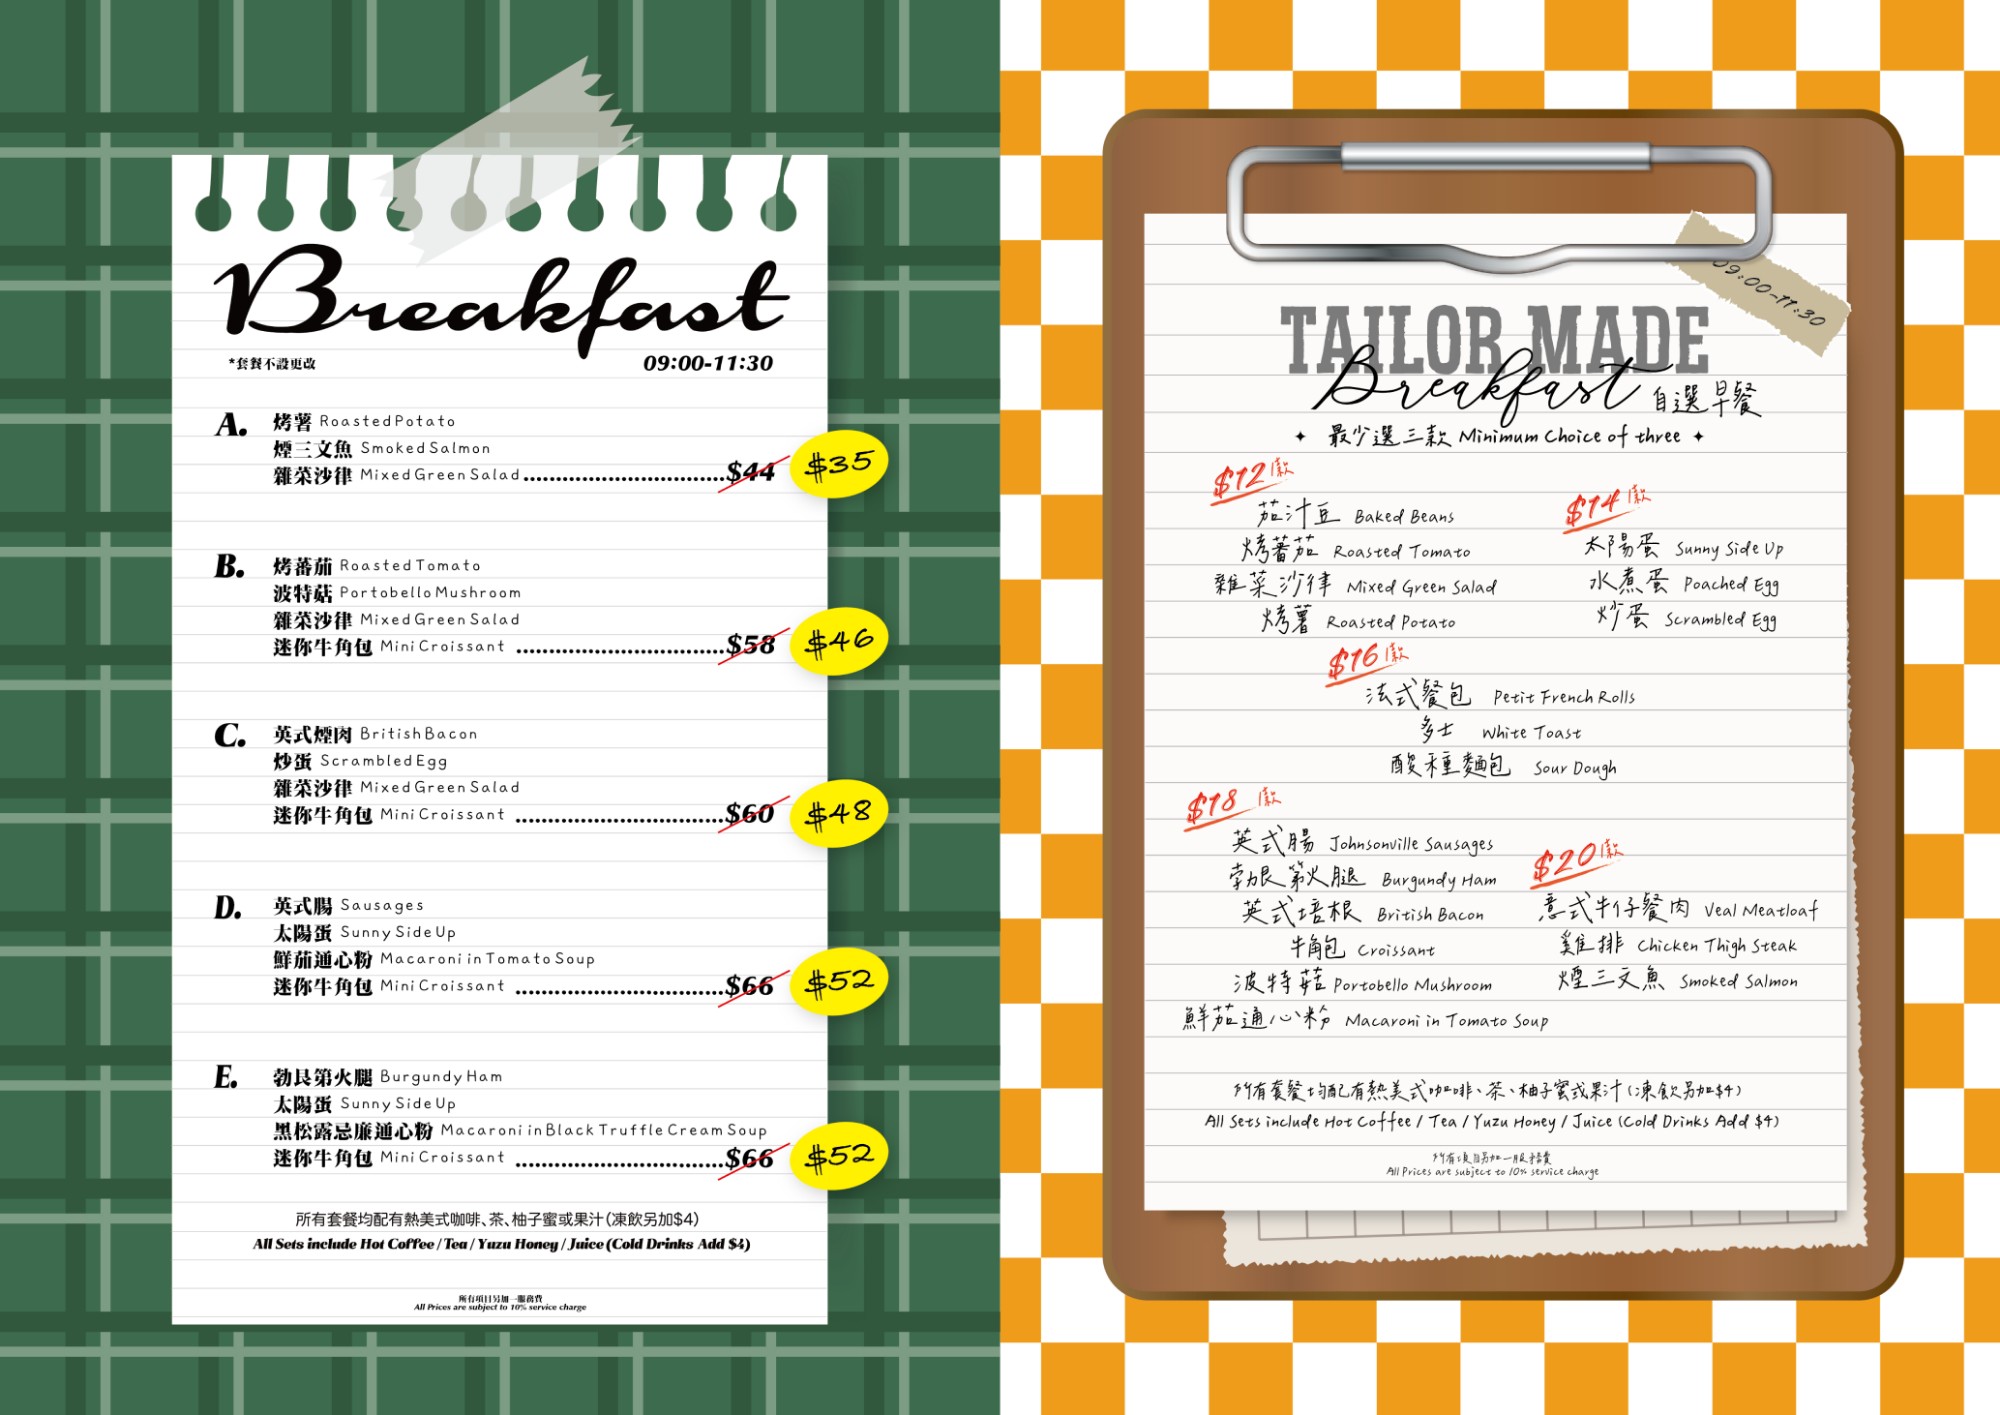 Breakfast
*套餐不設更改
09:00-11:30
A. 烤薯 Roasted Potato
煙三文魚 Smoked Salmon
雜菜沙律 Mixed Green Salad $44 $35
B. 烤蕃茄 Roasted Tomato
波特菇 Portobello Mushroom
雜菜沙律 Mixed Green Salad
迷你牛角包 Mini Croissant $58 $46
C. 英式煙肉 British Bacon
炒蛋 Scrambled Egg
雜菜沙律 Mixed Green Salad
迷你牛角包 Mini Croissant $60 $48
D. 英式腸 Sausages
太陽蛋 Sunny Side Up
鮮茄通心粉 Macaroni in Tomato Soup
迷你牛角包 Mini Croissant $66 $52
E. 勃艮第火腿 Burgundy Ham
太陽蛋 Sunny Side Up
黑松露忌廉通心粉 Macaroni in Black Truffle Cream Soup
迷你牛角包 Mini Croissant $66 $52
所有套餐均配有熱美式咖啡、茶、柚子蜜或果汁(凍飲另加$4)
All Sets include Hot Coffee / Tea / Yuzu Honey / Juice (Cold Drinks Add $4)
所有項目另加一服務費
All Prices are subject to 10% service charge
09:00-11:30
TAILOR MADE
Breakfast 自選早餐
最少選三款 Minimum Choice of three
$12/款
茄汁豆 Baked Beans
烤蕃茄 Roasted Tomato
雜菜沙律 Mixed Green Salad
烤薯 Roasted Potato
$14/款
太陽蛋 Sunny Side Up
水煮蛋 Poached Egg
炒蛋 Scrambled Egg
$16/款
法式餐包 Petit French Rolls
多士 White Toast
酸種麵包 Sour Dough
$18/款
英式腸 Johnsonville Sausages
勃艮第火腿 Burgundy Ham
英式培根 British Bacon
牛角包 Croissant
波特菇 Portobello Mushroom
鮮茄通心粉 Macaroni in Tomato Soup
$20/款
意式牛仔餐肉 Veal Meatloaf
雞排 Chicken Thigh Steak
煙三文魚 Smoked Salmon
所有套餐均配有熱美式咖啡、茶、柚子蜜或果汁(凍飲另加$4)
All Sets include Hot Coffee / Tea / Yuzu Honey / Juice (Cold Drinks Add $4)
所有項目另加一服務費
All Prices are subject to 10% service charge